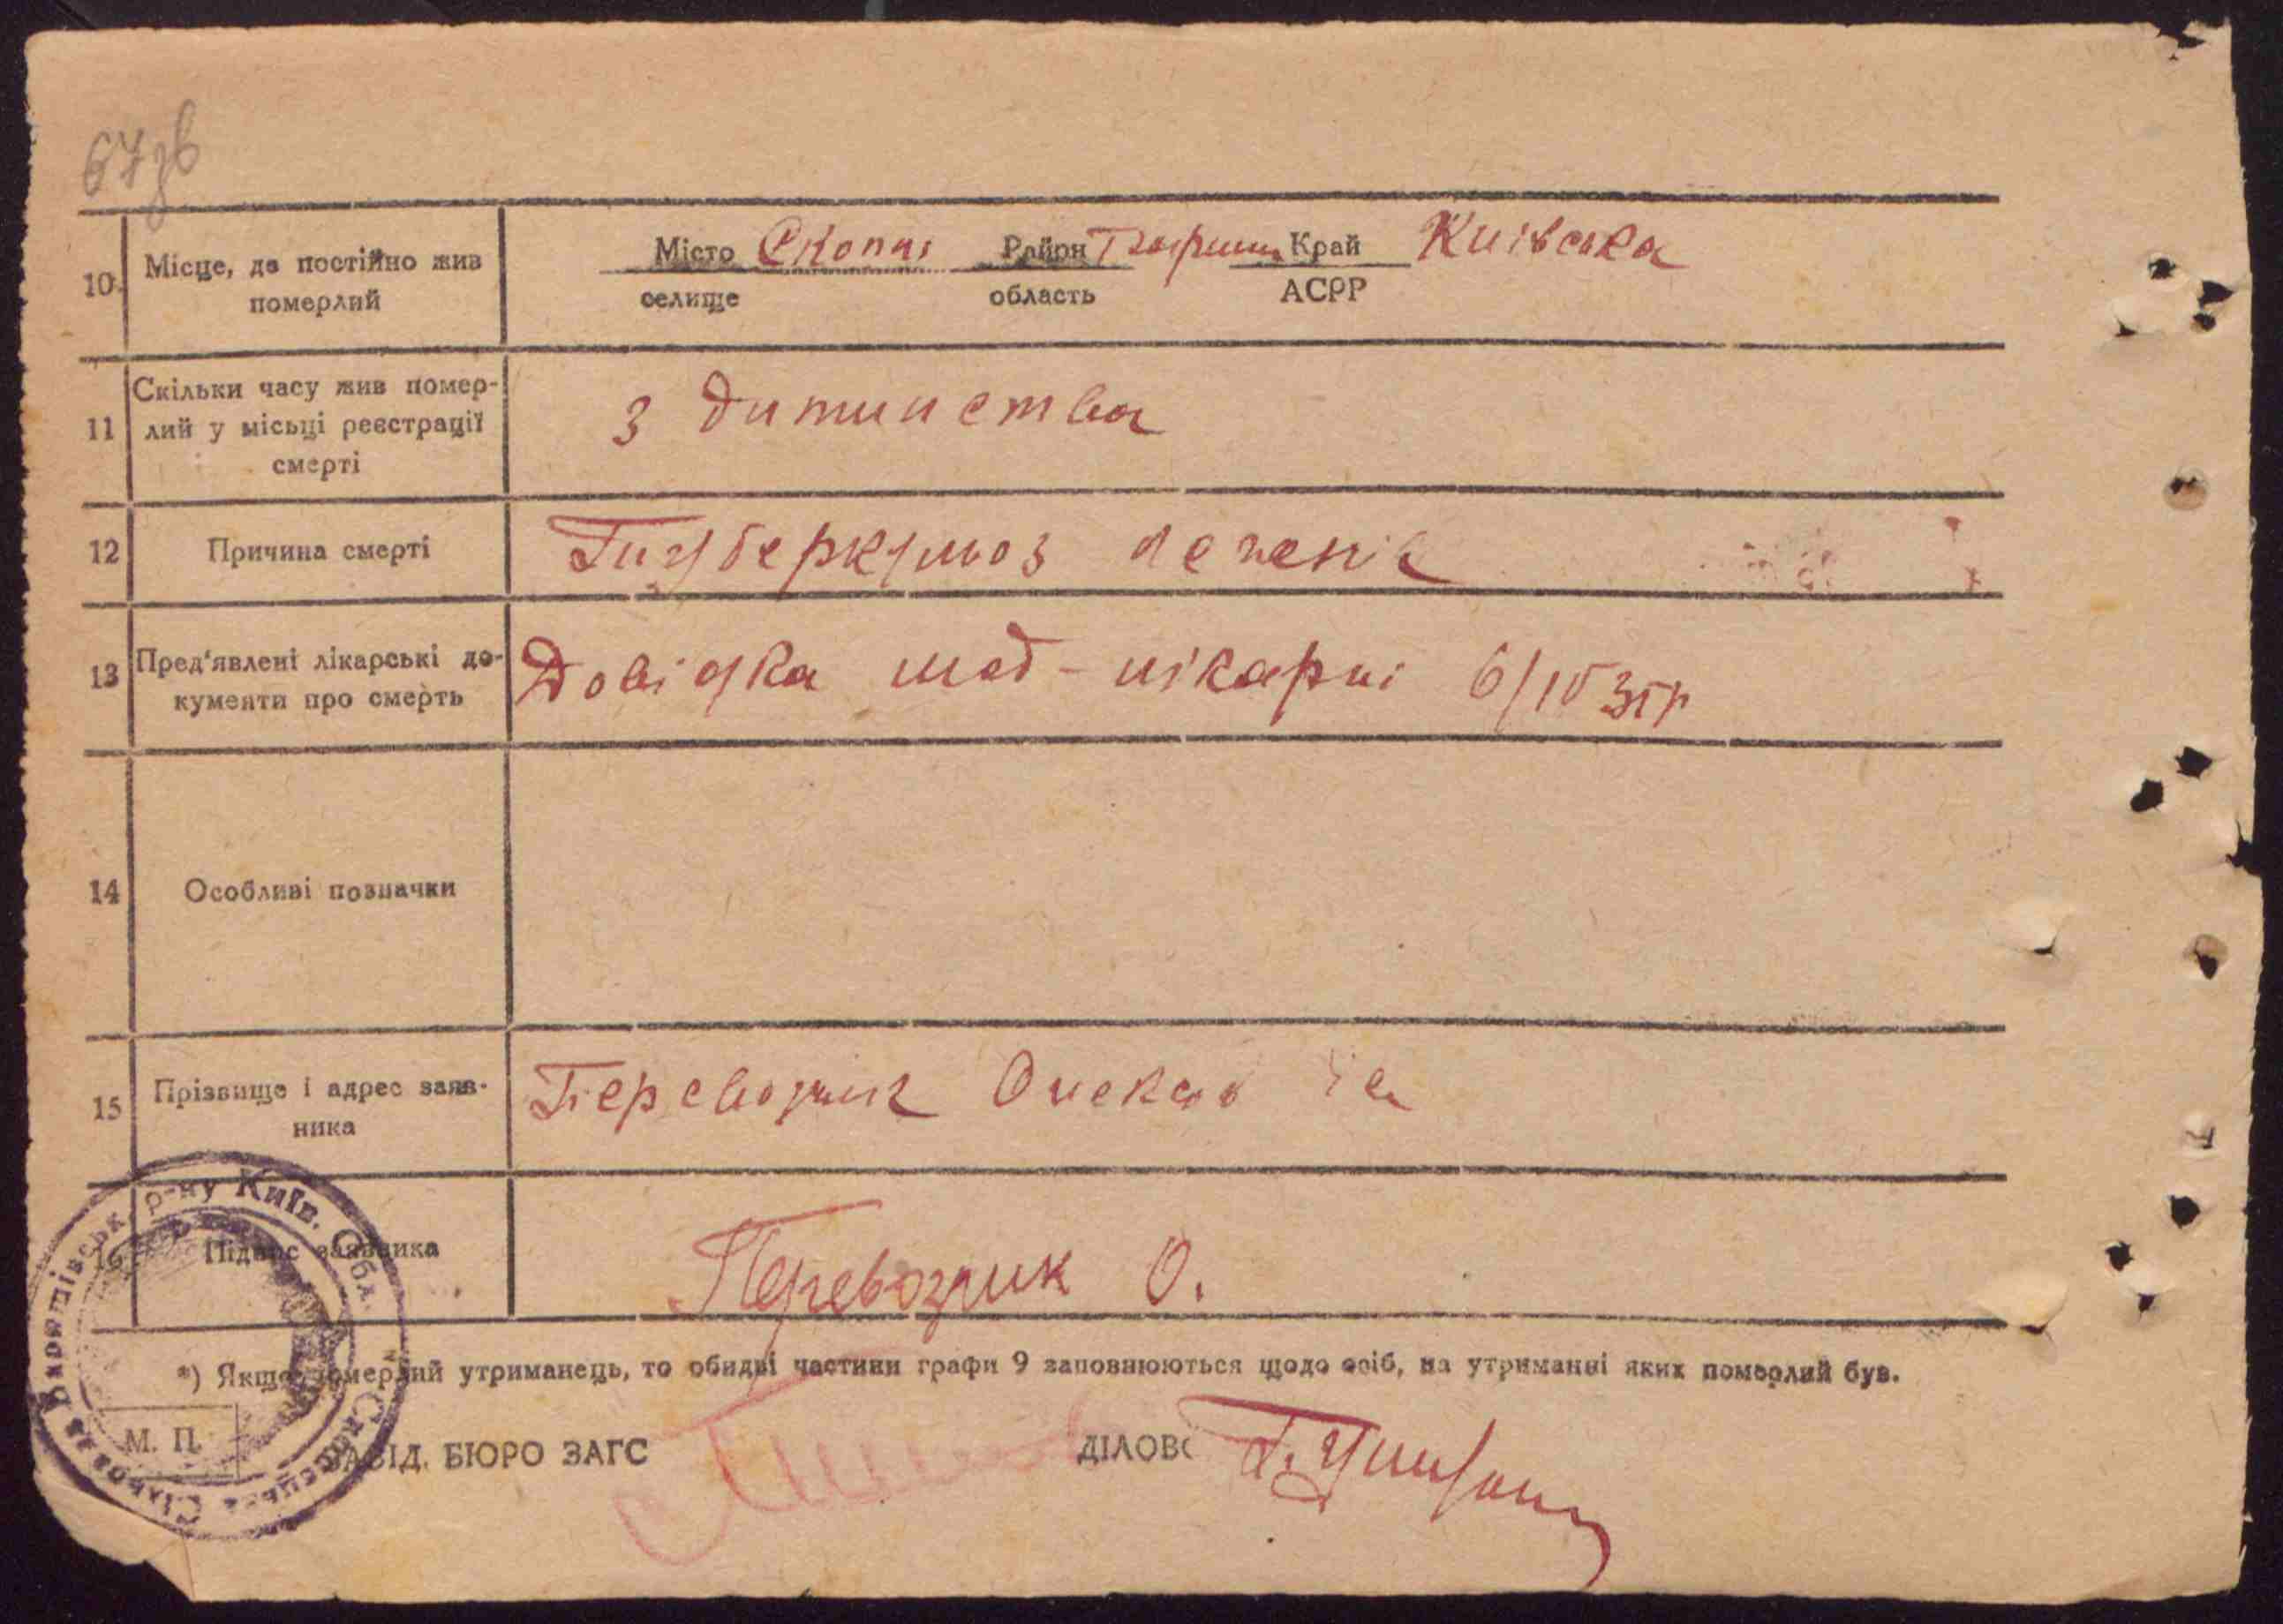 67зв
10. Місце, де постійно жив померлий
Місто Скопці Район Край Київська
селище область АСРР
11 Скільки часу жив помер-
лий у місьці реєстрації
смерті
З дитинства
12 Причина смерті
Туберкульоз легенів
13 Пред'явлені лікарські до-
кументи про смерть
Довідка мед-лікарні 6/10 35р
14 Особливі позначки
15 Прізвище і адрес заяв-
ника
Перевозник Олексій
16 Підпис заявника
Перевозник О.
*) Якщо померлий утриманець, то обидві частини графи 9 заповнюються щодо осіб, на утриманні яких померлий був.
М. П. ЗАВІД. БЮРО ЗАГС ДІЛОВ
р-ну Київ. Обл.